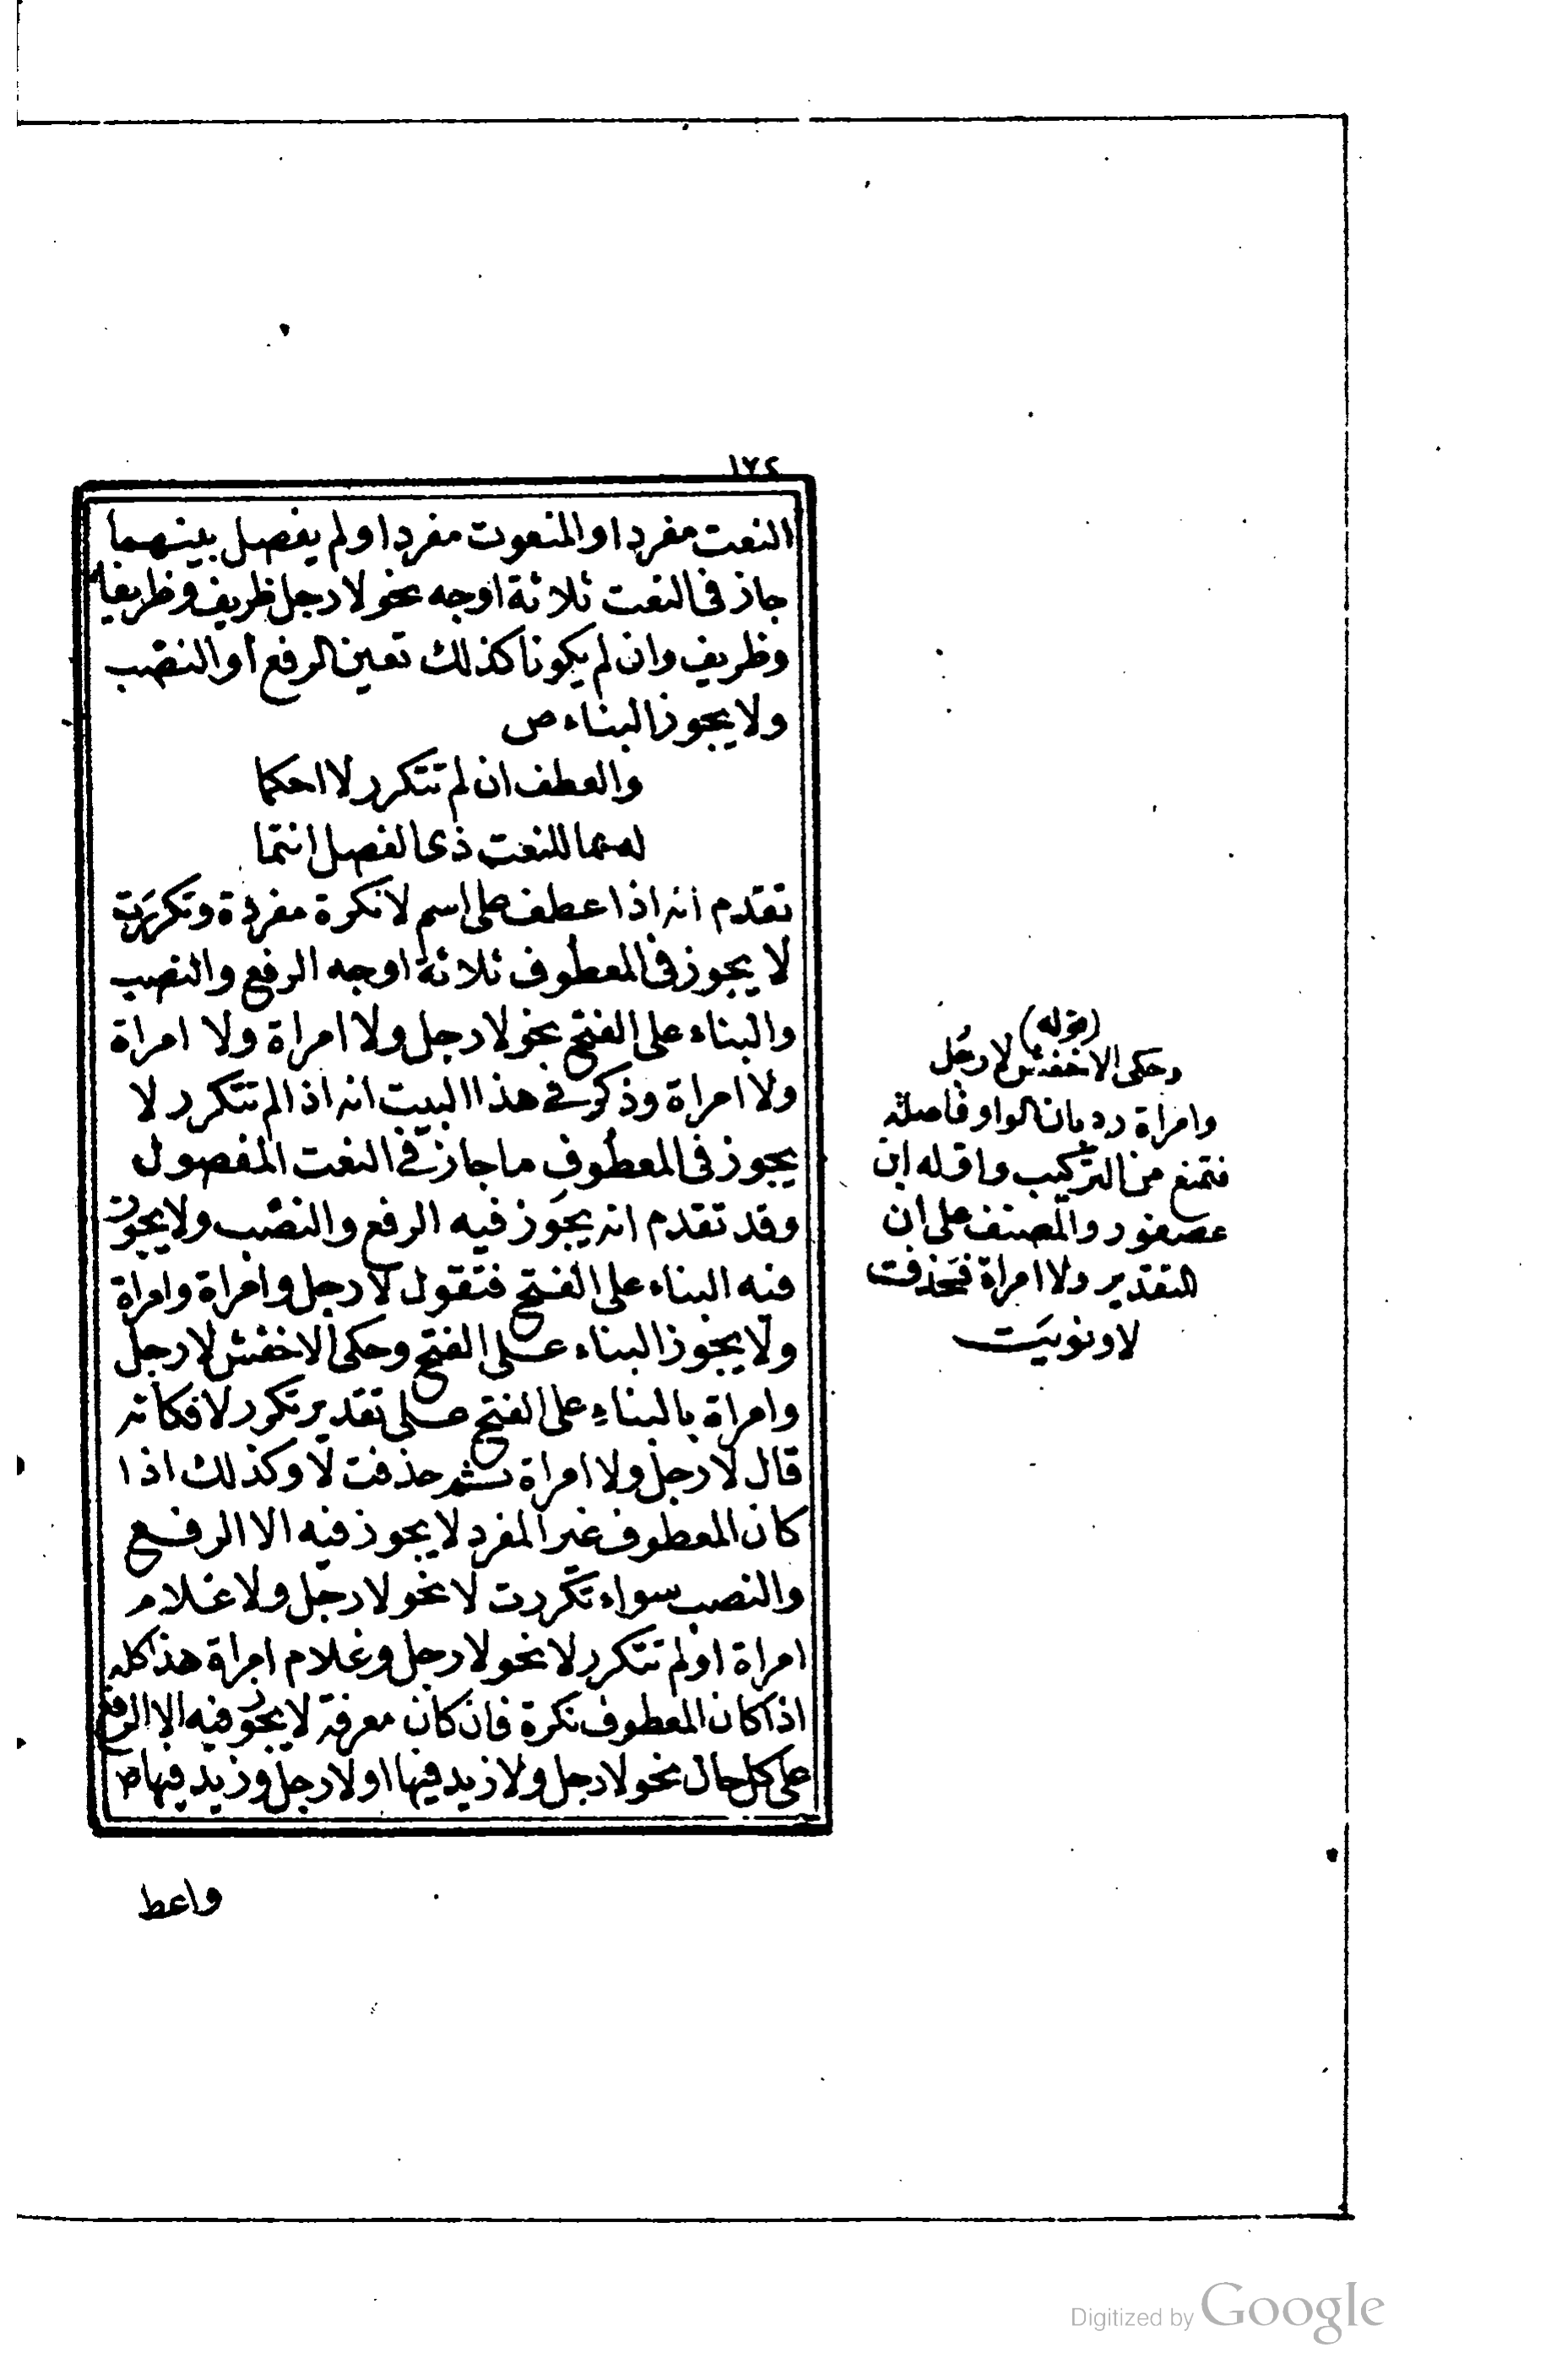 ١٧٢
النعت مفردا والمنعوت مفردا ولم يفصل بينهما
جاز فى النعت ثلاثة اوجه نحو لا رجل ظريف وظريفا
وظريف وان لم يكونا كذلك تعين الرفع أو النصب
ولا يجوز البناء ص
والعطف ان لم تتكرر لا احكما
له بما للنعت ذى الفصل انتما
تقدم انه اذا عطف على اسم لا نكرة مفردة وتكررت
لا يجوز فى المعطوف ثلاثة اوجه الرفع والنصب
والبناء على الفتح نحو لا رجل ولا امراة ولا امراة
ولا امراة وذكر فى هذا البيت انه اذا لم تتكرر لا
يجوز فى المعطوف ما جاز فى النعت المفصول
وقد تقدم انه يجوز فيه الرفع والنصب ولا يجوز
فيه البناء على الفتح فتقول لا رجل وامراة وامراة
ولا يجوز البناء على الفتح وحكى الاخفش لا رجل
وامراة بالبناء على الفتح على تقدير تكرر لا فكانه
قال لا رجل ولا امراة ثم حذفت لا وكذلك اذا
كان المعطوف غير المفرد لا يجوز فيه الا الرفع
والنصب سواء تكررت لا نحو لا رجل ولا غلام
امراة او لم تتكرر لا نحو لا رجل وغلام امراة هذا كله
اذا كان المعطوف نكرة فان كان معرفة لا يجوز فيه الا الرفع
على كل حال نحو لا رجل ولا زيد فيها او لا رجل وزيد فيها ص
واعط
(قوله)
وحكى الاخفش لا رجل
وامراة رد بان الواو فاصلة
فتمنع من التركيب واوله ابن
عصفور والمصنف على ان
التقدير ولا امراة فحذفت
لا ونويت
Digitized by Google